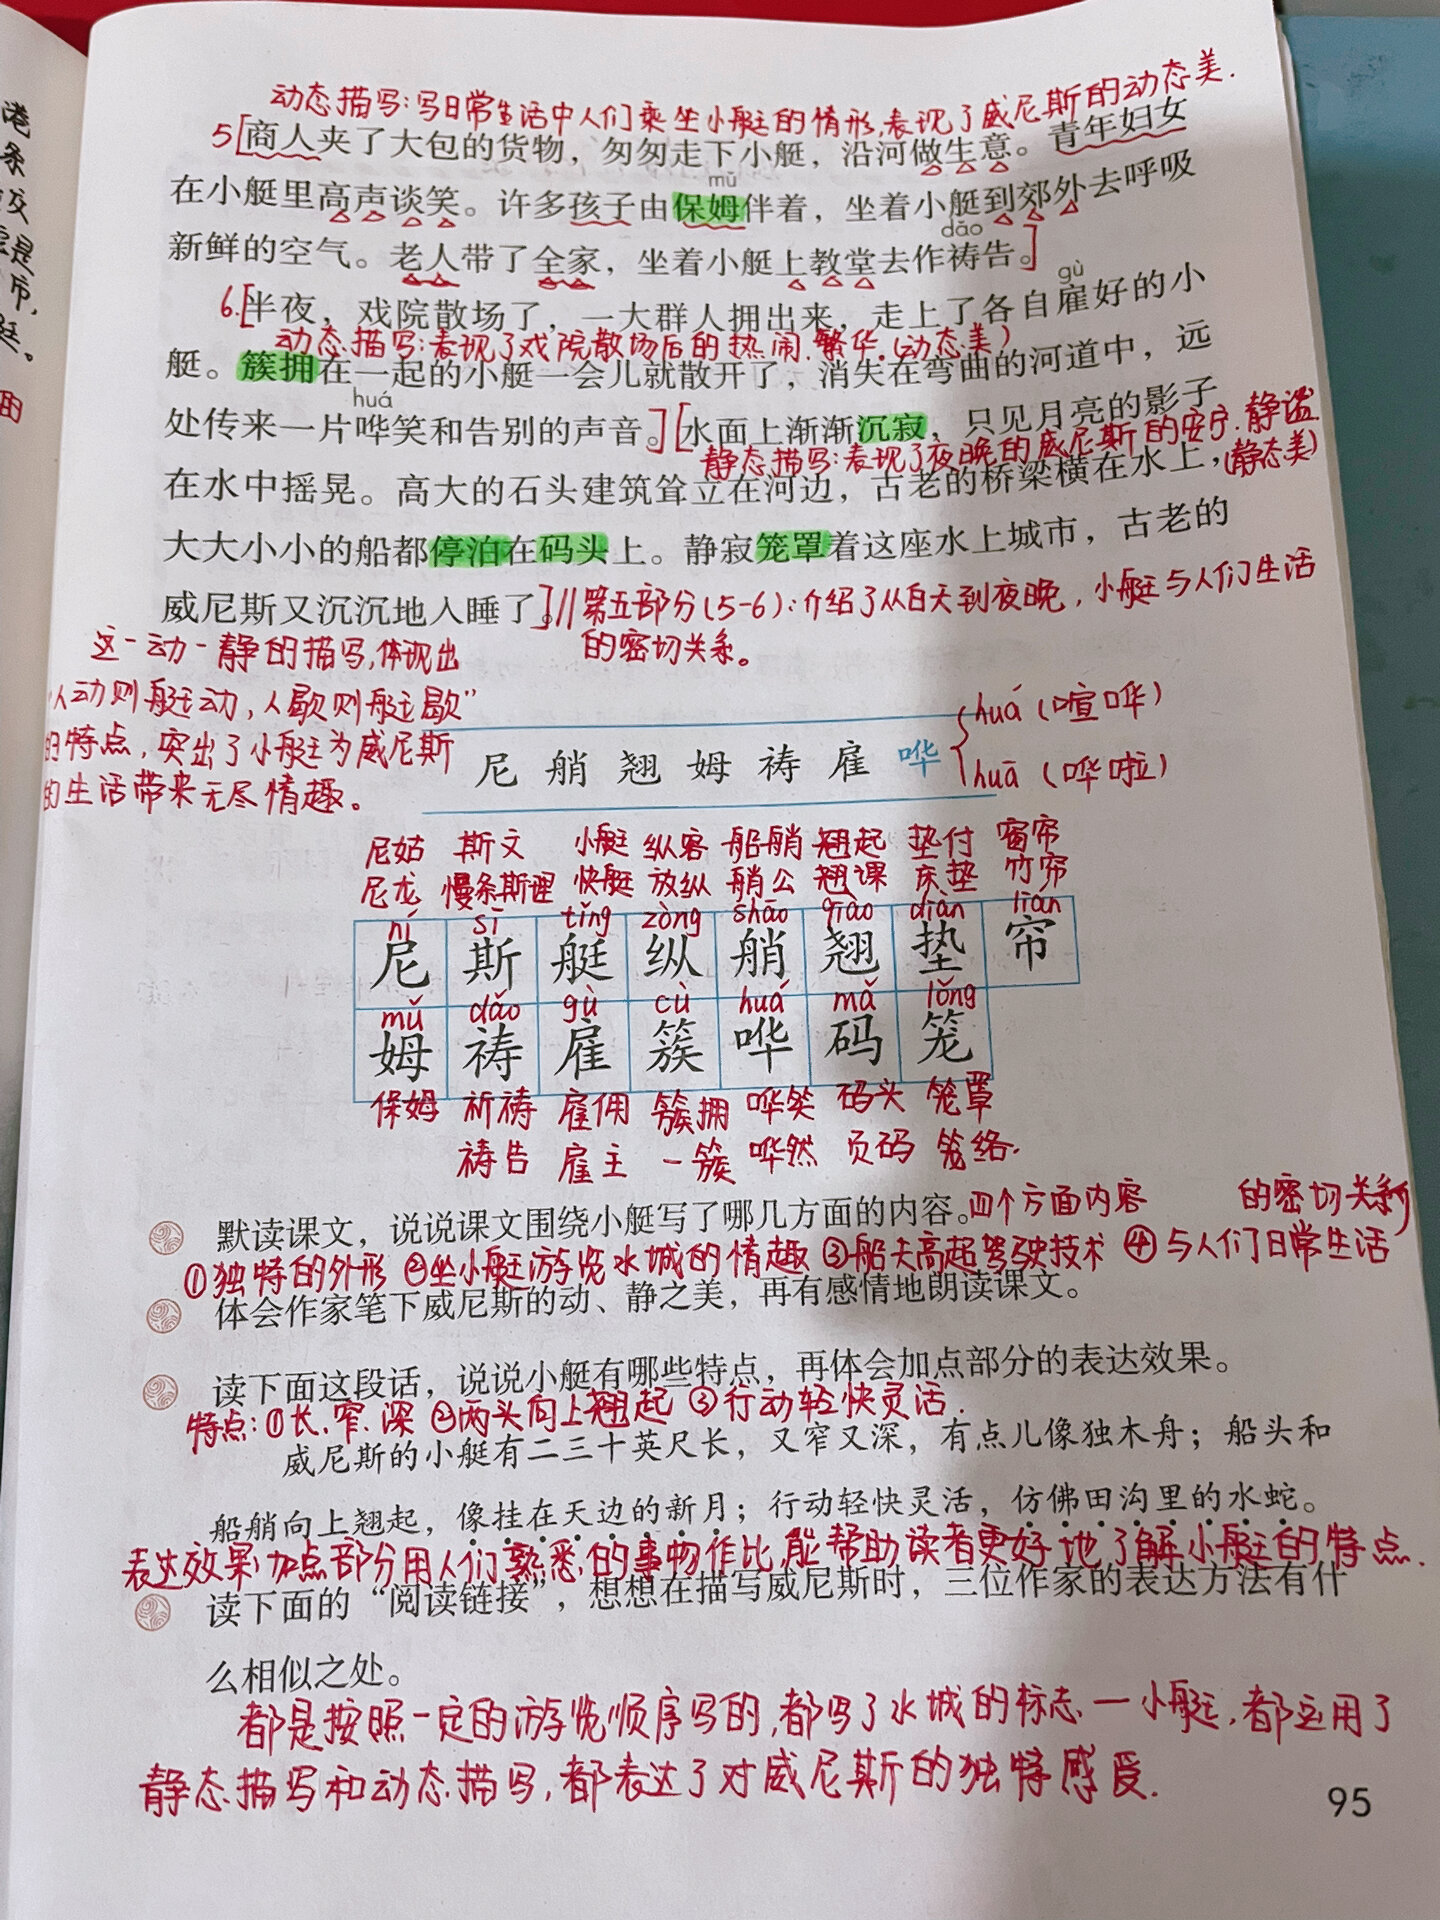 港
条
交
是
市,
艇。
的
动态描写:写日常生活中人们乘坐小艇的情形,表现了威尼斯的动态美.
5[商人夹了大包的货物，匆匆走下小艇，沿河做生意。青年妇女
mǔ
在小艇里高声谈笑。许多孩子由保姆伴着，坐着小艇到郊外去呼吸
dǎo
新鲜的空气。老人带了全家，坐着小艇上教堂去作祷告。]
gù
6.[半夜，戏院散场了，一大群人拥出来，走上了各自雇好的小
动态描写:表现了戏院散场后的热闹.繁华.(动态美)
艇。簇拥在一起的小艇一会儿就散开了，消失在弯曲的河道中，远
huá
处传来一片哗笑和告别的声音。][水面上渐渐沉寂，只见月亮的影子
静态描写:表现了夜晚的威尼斯的安宁.静谧
在水中摇晃。高大的石头建筑耸立在河边，古老的桥梁横在水上，(静态美)
大大小小的船都停泊在码头上。静寂笼罩着这座水上城市，古老的
威尼斯又沉沉地入睡了。]//第五部分(5-6):介绍了从白天到夜晚,小艇与人们生活
的密切关系。
这一动一静的描写,体现出
“人动则艇动,人歇则艇歇”
的特点,突出了小艇为威尼斯
的生活带来无尽情趣。
尼 艄 翘 姆 祷 雇 哗
huá (喧哗)
huā (哗啦)
尼姑 斯文 小艇 纵容 船艄 翘起 垫付 窗帘
尼龙 慢条斯理 快艇 放纵 艄公 翘课 床垫 竹帘
ní sī tǐng zòng shāo qiào diàn lián
尼 斯 艇 纵 艄 翘 垫 帘
mǔ dǎo gù cù huá mǎ lǒng
姆 祷 雇 簇 哗 码 笼
保姆 祈祷 雇佣 簇拥 哗笑 码头 笼罩
祷告 雇主 一簇 哗然 页码 笼络.
默读课文，说说课文围绕小艇写了哪几方面的内容。四个方面内容
①独特的外形 ②坐小艇游览水城的情趣 ③船夫高超驾驶技术 ④与人们日常生活
的密切关系
体会作家笔下威尼斯的动、静之美，再有感情地朗读课文。
读下面这段话，说说小艇有哪些特点，再体会加点部分的表达效果。
特点:①长.窄.深 ②两头向上翘起 ③行动轻快灵活.
威尼斯的小艇有二三十英尺长，又窄又深，有点儿像独木舟；船头和
船艄向上翘起，像挂在天边的新月；行动轻快灵活，仿佛田沟里的水蛇。
表达效果:加点部分用人们熟悉的事物作比,能帮助读者更好地了解小艇的特点.
读下面的“阅读链接”，想想在描写威尼斯时，三位作家的表达方法有什
么相似之处。
都是按照一定的游览顺序写的,都写了水城的标志一小艇,都运用了
静态描写和动态描写,都表达了对威尼斯的独特感受.
95